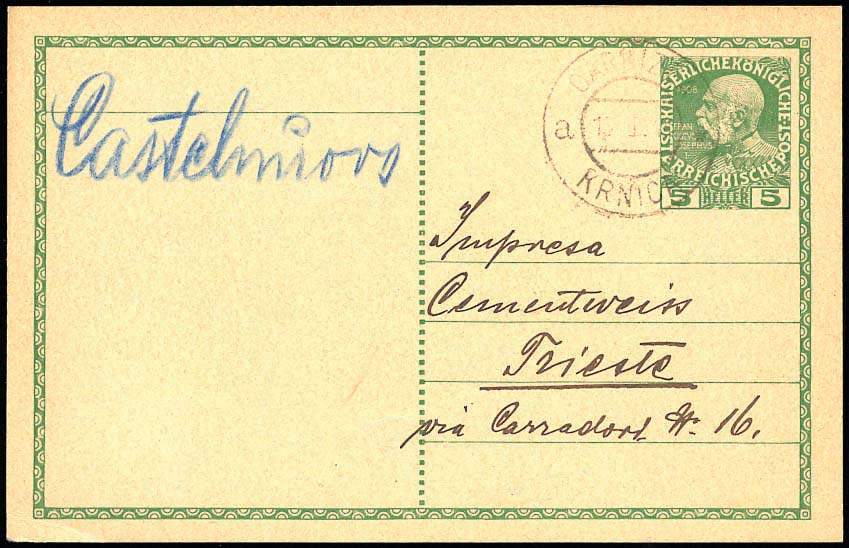 Castelmuovo
CARNIZ
a
KRNIC
KAISERLICHEKÖNIGLICHE
ÖSTERREICHISCHEPOST
1908
5 HELLER 5
Impresa
Cementweiss
Trieste
via Carradori N. 16.